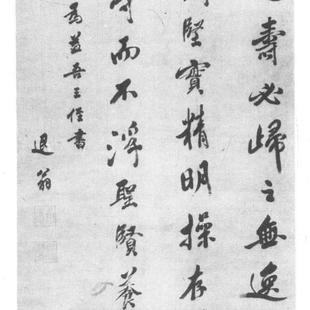 壽必歸之無逸
堅實精明操存
而不浮聖賢養
為益吾三侄書
退翁